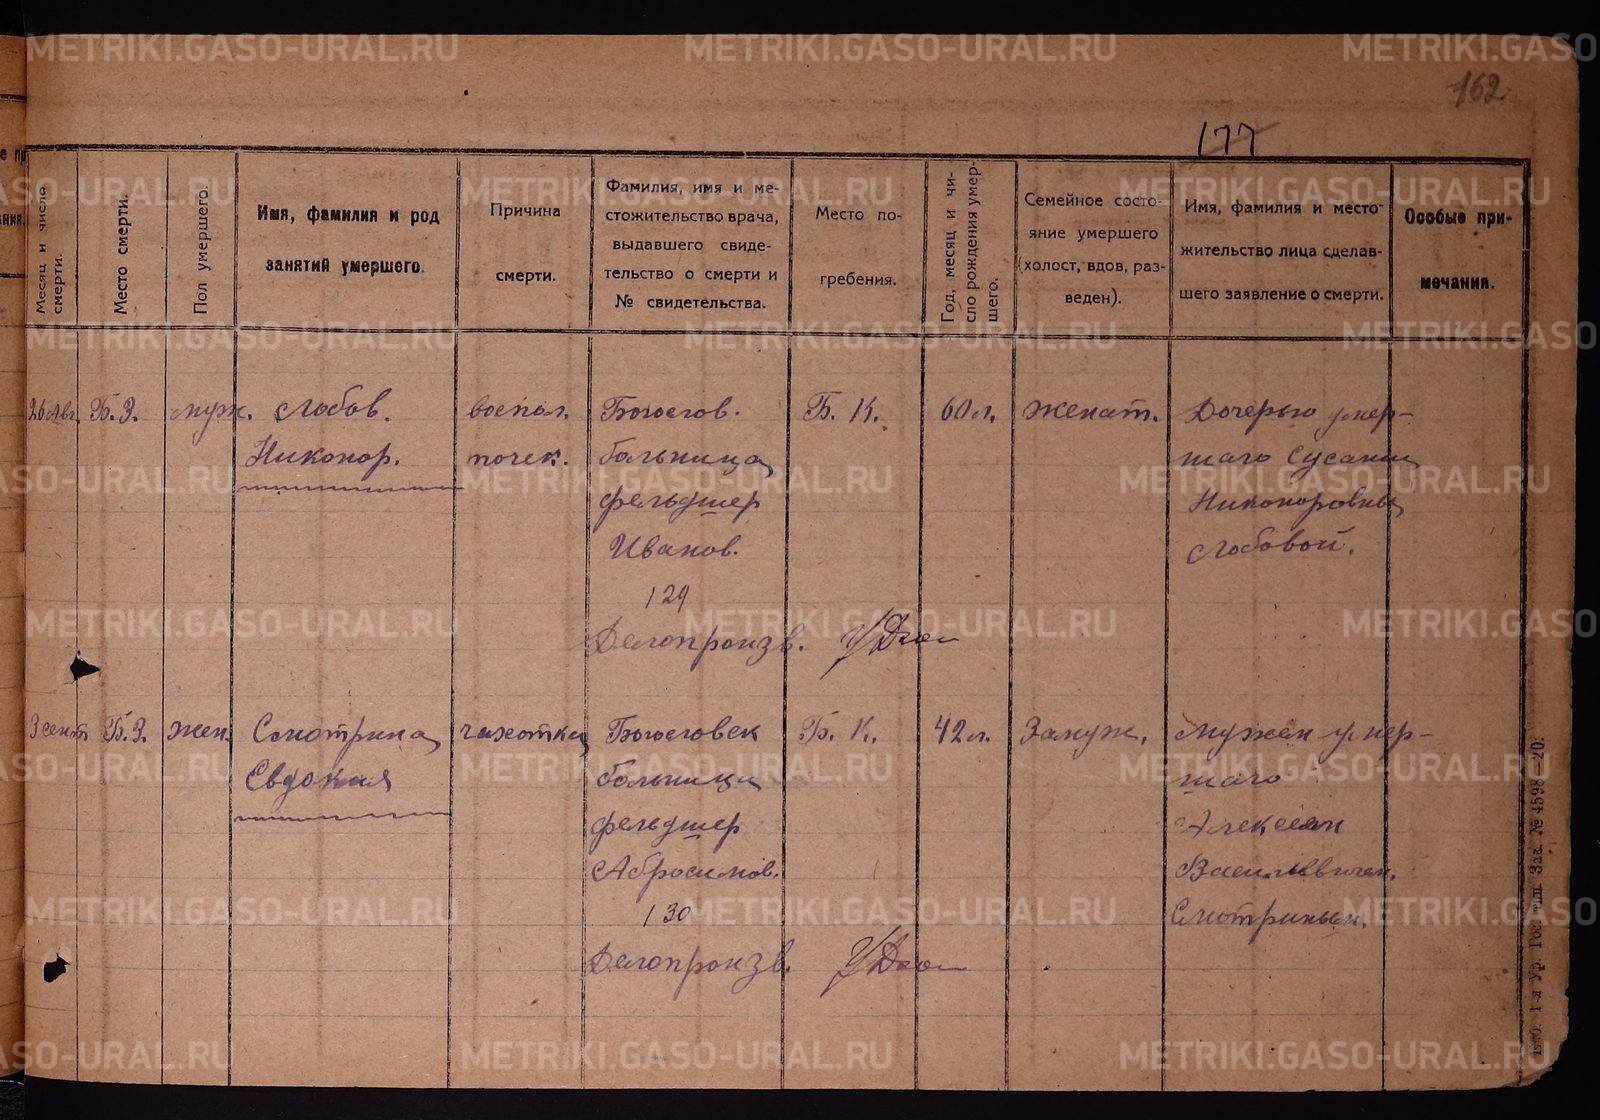 162
177
Месяц и число смерти.
Место смерти.
Пол умершего.
Имя, фамилия и род
занятий умершего.
Причина
смерти.
Фамилия, имя и ме-
стожительство врача,
выдавшего свиде-
тельство о смерти и
№ свидетельства.
Место по-
гребения.
Год, месяц и чи-
сло рождения умер-
шего.
Семейное состо-
яние умершего
(холост, вдов, раз-
веден).
Имя, фамилия и место-
жительство лица сделав-
шего заявление о смерти.
Особые при-
мечания.
26 Авг.
Б. З.
муж.
Лобов.
Никонор.
воспал.
почек.
больница
фельдшер
Иванов.
129
Делопроизв.
Б. К.
60 л.
Женат.
Дочерью умер-
шаго Сусанны
Никоноровны
Лобовой.
3 сент
Б. З.
жен.
Смотрина
Евдокия
чахотка
больница
фельдшер
Абросимов.
130
Делопроизв.
Б. К.
42 л.
Замуж.
Мужем умер-
шаго
Алексеем
Васильевичем.
Смотриным.
1-я Ур. Гос. тип. Зак. № 4598—20.
METRIKI.GASO-URAL.RU